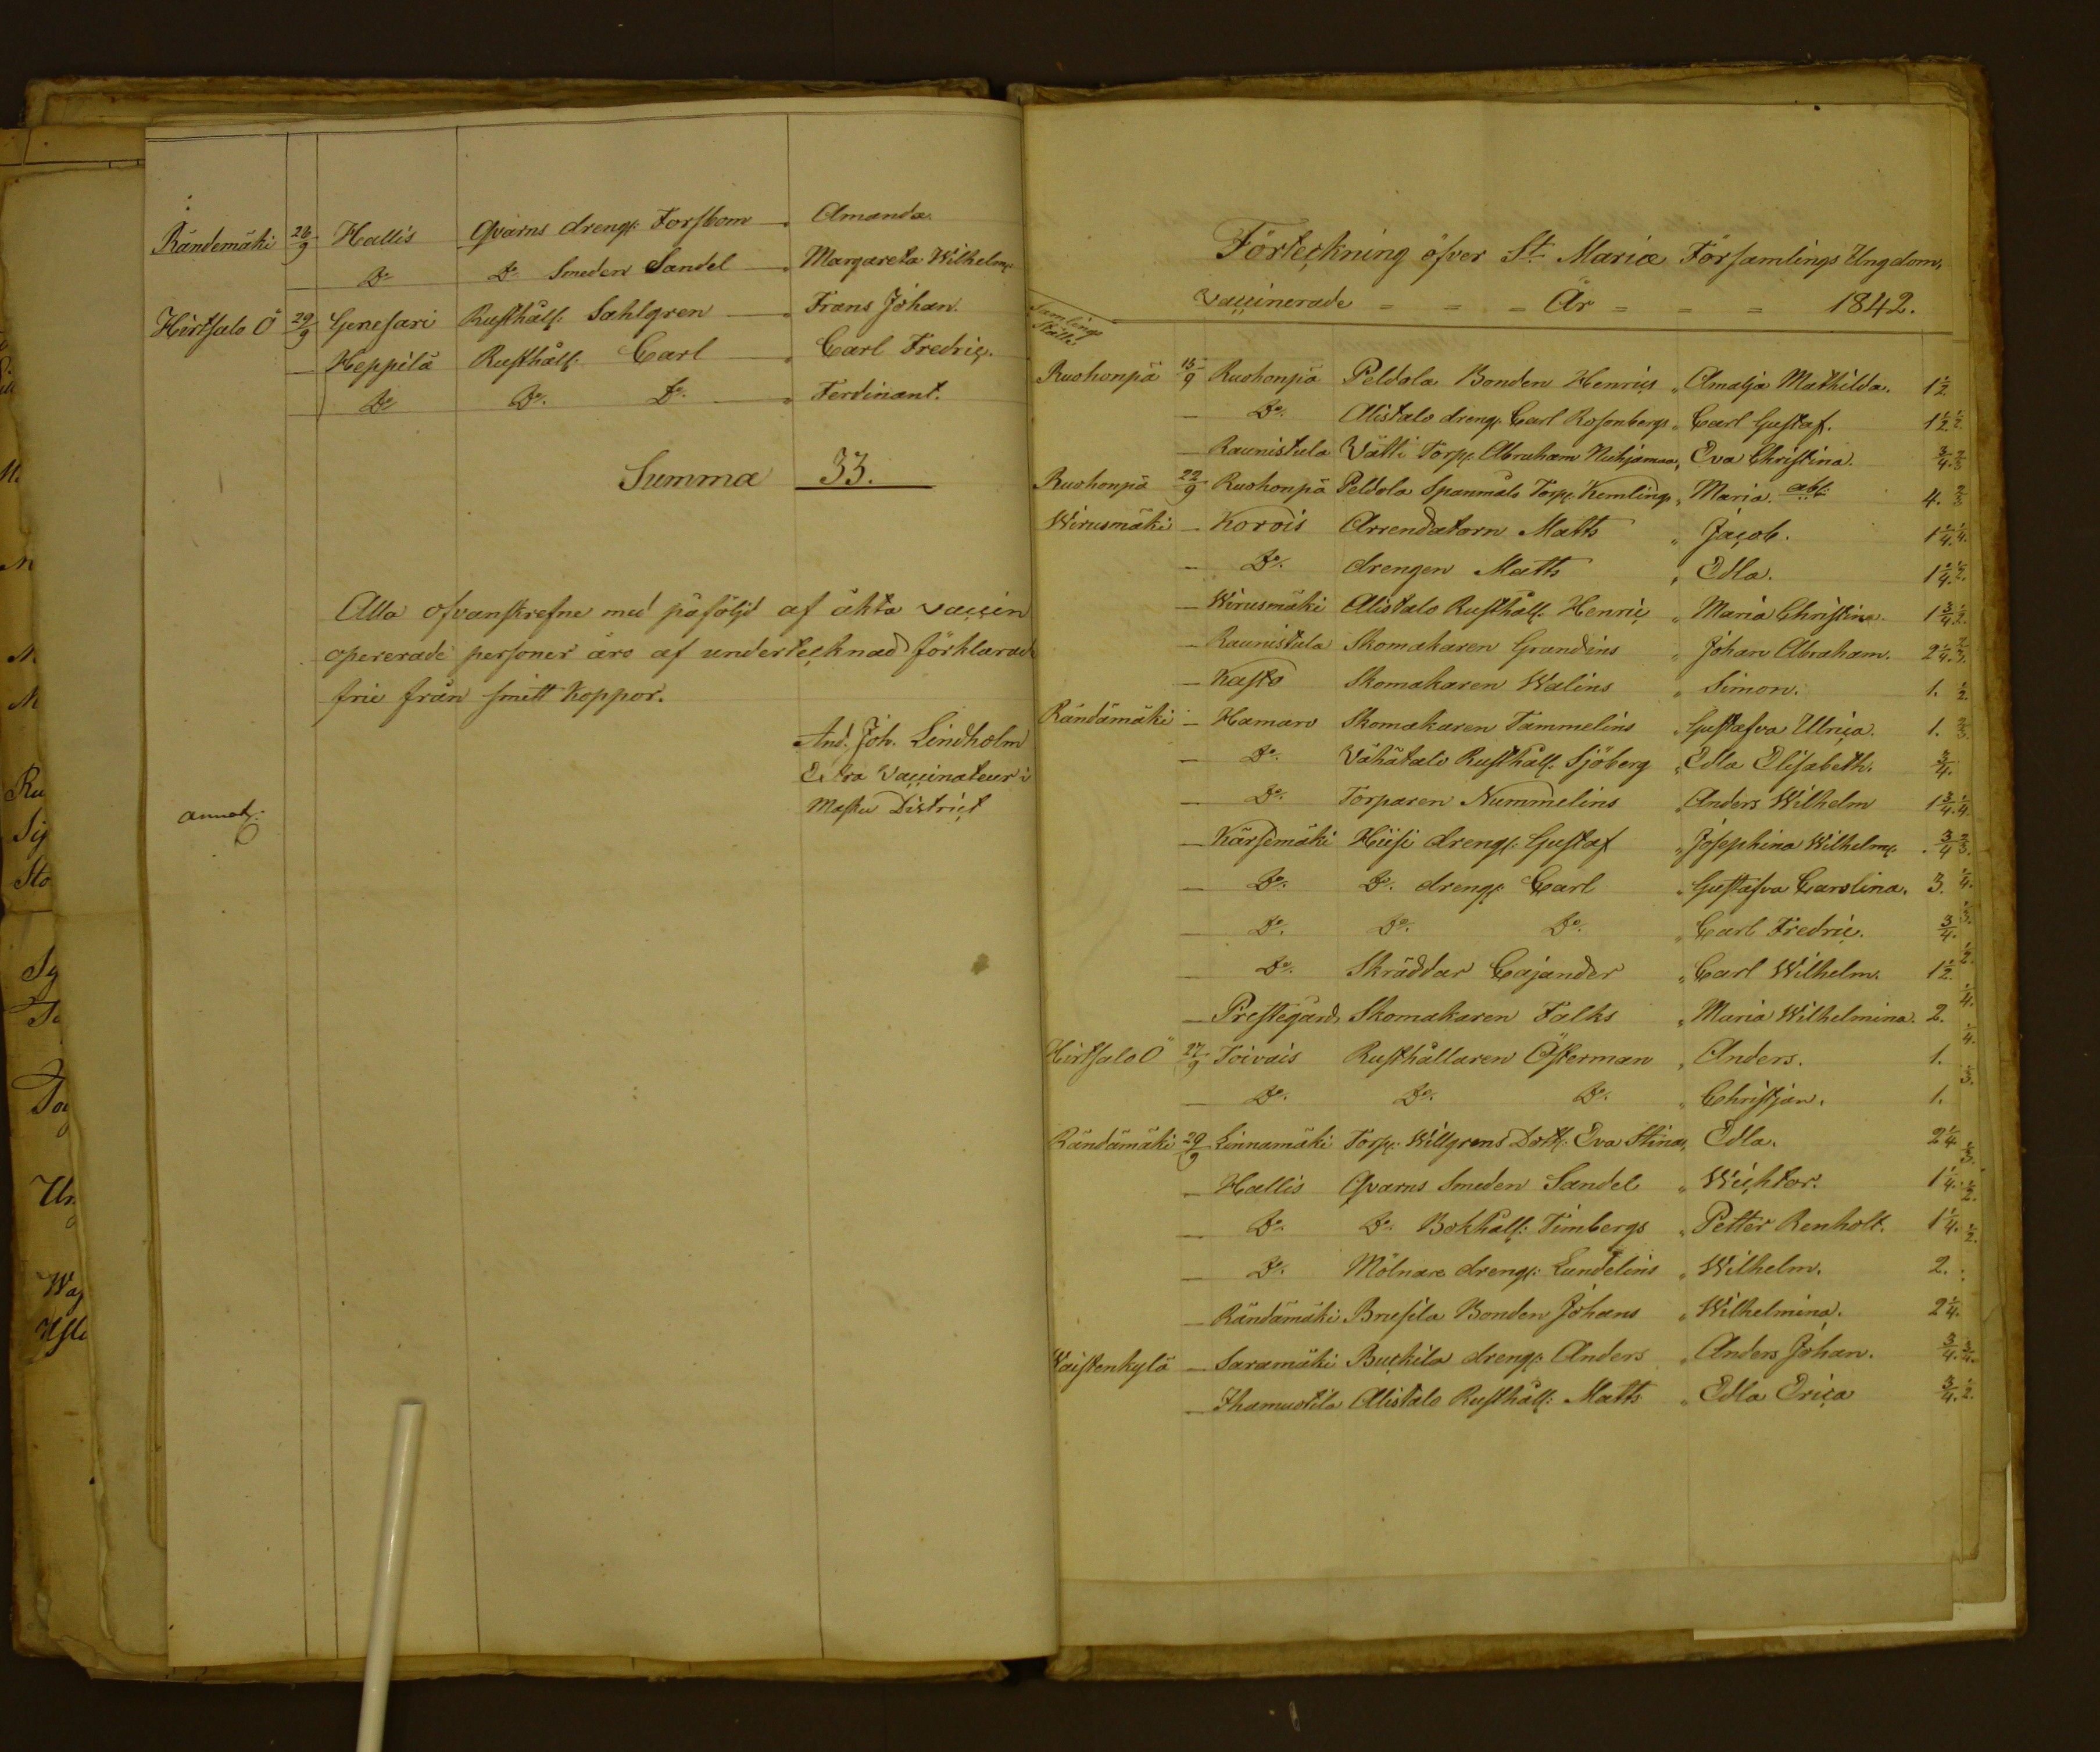 Rändemäki 26/9 Hallis Qvarns dreng: Forsbom " Amanda
Do Do Smeden Sandel " Margareta Wilhelm:
Hirtsalo Ö 29/9 Genesari Rusthåll: Sahlgren " Frans Johan.
Heppilä Rusthåll: Carl " Carl Fredric.
Do Do. Do. " Ferdinant.
Summa 33.
Alla ofvanskrefne med påföljd af äkta vaccin
opererade personer äro af undertecknad förklarade
frie från smitt Koppor.
And. Joh. Lindholm
Extra Vaccinateur i
Masku District
annot:
Förteckning öfver St. Mariæ Församlings Ungdom,
vaccinerade = = = År = = = 1842.
Samlings Ställe
Ruohonpä 15/9 Ruohonpä Peldola Bonden Henrics " Amalja Mathilda. 1 1/2
— Do. Alistalo dreng: Carl Rosenbergs " Carl Gustaf. 1 1/2. 1/2.
— Raunistula Vätti Torp: Abraham Nuhjamaa " Eva Christina. 3/4. 2/3
Ruohonpä 22/9 Ruohonpä Peldola Spanmåls Torp: Kemlings " Maria. abf: 4. 2/3
Wirusmäki — Korois Arrendatorn Matts " Jacob. 1 1/4. 1/4.
— Do. drengen Matts " Edla. 1 1/4. 1/2.
— Wirusmäki Alistalo Rusthåll: Henric " Maria Christina. 1 3/4. 1/2.
— Raunistula Skomakaren Grandins " Johan Abraham. 2 1/4. 2/3.
— Kasto Skomakaren Walins " Simon. 1. 1/2.
Rändämäki — Hamaro Skomakaren Tammelins " Gustafva Ulrica. 1. 2/3.
— Do. Vähätalo Rusthåll: Sjöberg " Edla Elisabeth. 3/4.
— Do. Torparen Nummelins " Anders Wilhelm 1 3/4. 1/4.
— Kärsämäki Hiisi dreng: Gustaf " Josephina Wilhelm: 3/4 2/3.
— Do. Do. dreng: Carl " Gustafva Carolina. 3. 1/4.
— Do. Do. Do. " Carl Fredric. 3/4. 1/3.
— Do. Skräddar Cajander " Carl Wilhelm. 1 1/2. 1/2.
— Prestegård Skomakaren Falks " Maria Wilhelmina. 2. 1/4.
Hirtsalo Ö 27/9 Toivais Rusthållaren Österman " Anders. 1. 1/4.
— Do. Do. Do. " Christjan. 1. 1/3.
Rändämäki 29/9 Linnamäki Torp: Willgrens Dott: Eva Stinas " Edla. 2 1/4 1/3.
— Hallis Qvarns Smeden Sandel " Wichtor. 1 1/4. 1/2.
— Do. Do. Bokhåll: Timbergs " Petter Renholt. 1 1/4. 1/2.
— Do. Mölnare dreng: Lundelins " Wilhelm. 2.
— Rändämäki Brusila Bonden Johans " Wilhelmina. 2 1/4.
Waistenkylä — Saramäki Buckila dreng: Anders " Anders Johan. 3/4. 3/4.
— Ihamuotila Alistalo Rusthåll: Matts " Edla Erica 3/4. 1/2.